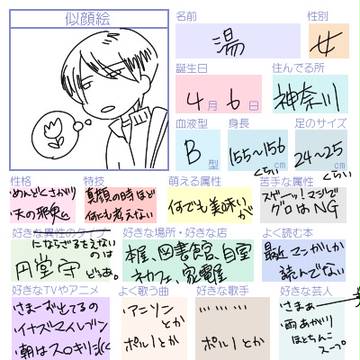 似顔絵
名前
性別
湯
女
誕生日
住んでる所
4月6日
神奈川
血液型
身長
足のサイズ
B型
155~156cmくらい
24~25cmくらい
性格
特技
萌える属性
苦手な属性
・めんどくさがり
・天の邪鬼
真顔の時ほど
何でも考えない
何でも美味い
スゲーッ!マジで
グロはNG
好きな男性のタイプ
好きな場所・好きな店
よく読む本
になるとなさるえないのは
円堂守
どうぁ。
本屋、図書館、自室
ネカフェ、家電屋
最近マンガしか
読んでない
好きなTVやアニメ
よく歌う曲
好きな歌手
好きな芸人
さまーず出てるの
イナズマイレブン
朝はスッキリ!!
・アニソン
とか
ポルノとか
………
ポルノとか
さまぁ~
雨あがり
ほとちゃんこ